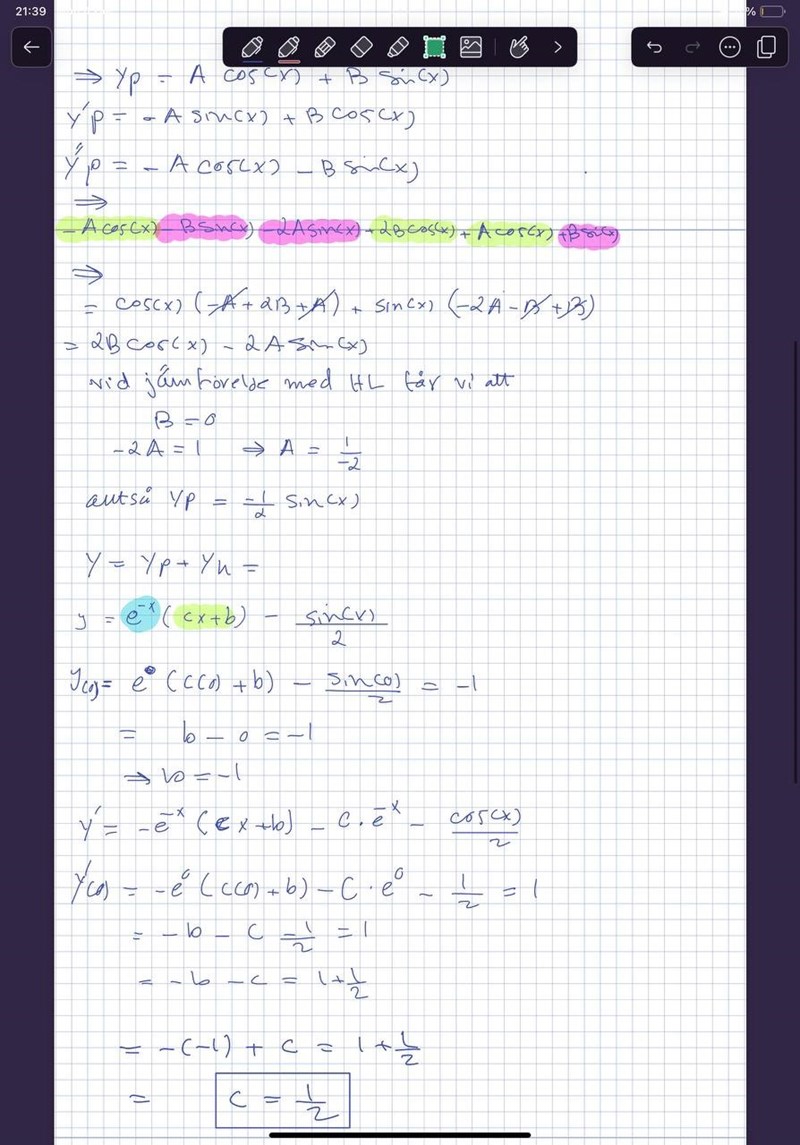 21:39 %
⇒ Yp = A cos(x) + B sin(x)
Y'p = -A sin(x) + B cos(x)
Y''p = -A cos(x) - B sin(x)
⇒
-A cos(x) - B sin(x) - 2A sin(x) + 2B cos(x) + A cos(x) + B sin(x)
⇒
= cos(x) (-A + 2B + A) + sin(x) (-2A - B + B)
= 2B cos(x) - 2A sin(x)
vid jämförelse med HL får vi att
B = 0
-2A = 1 ⇒ A = 1/-2
alltså Yp = -1/2 sin(x)
Y = Yp + Yh =
y = e^-x (cx+b) - sin(x)/2
Y(0) = e^0 (c(0) + b) - sin(0)/2 = -1
= b - 0 = -1
⇒ b = -1
Y' = -e^-x (cx+b) - c·e^-x - cos(x)/2
Y'(0) = -e^0 (c(0) + b) - c·e^0 - 1/2 = 1
= -b - c -1/2 = 1
= -b - c = 1 + 1/2
= -(-1) + c = 1 + 1/2
= c = 1/2